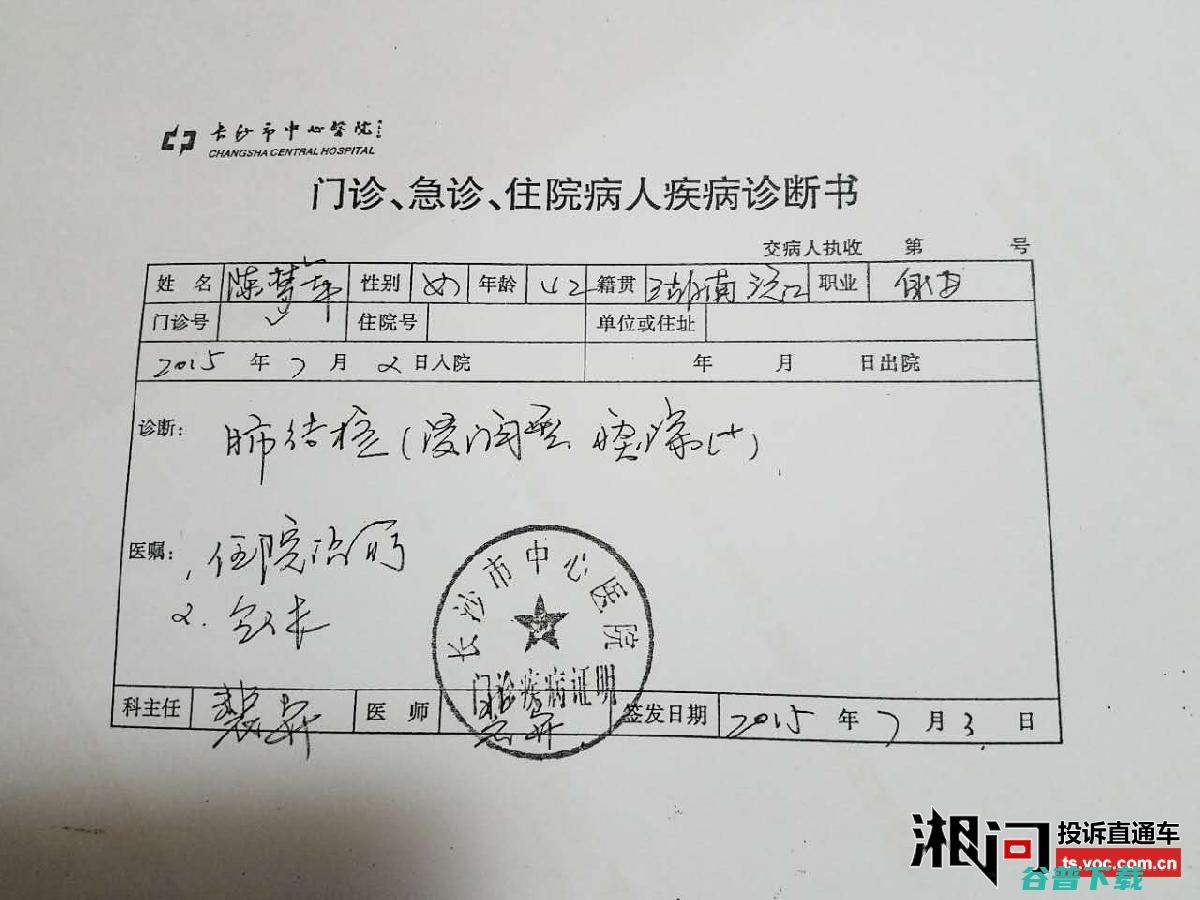 长沙市中心医院
CHANGSHA CENTRAL HOSPITAL
门诊、急诊、住院病人疾病诊断书
交病人执收 第 号
姓 名 陈梦 性别 女 年龄 42 籍贯 湖南 职业
门诊号 住院号 单位或住址
2015 年 7 月 2 日入院 年 月 日出院
诊断: 肺结核(浸润型 痰涂(+)
医嘱: 1. 住院治疗
2.
长沙市中心医院
门诊疾病证明
科主任 医 师 签发日期 2015 年 7 月 3 日
湘问 投诉直通车
ts.voc.com.cn
谷普下载